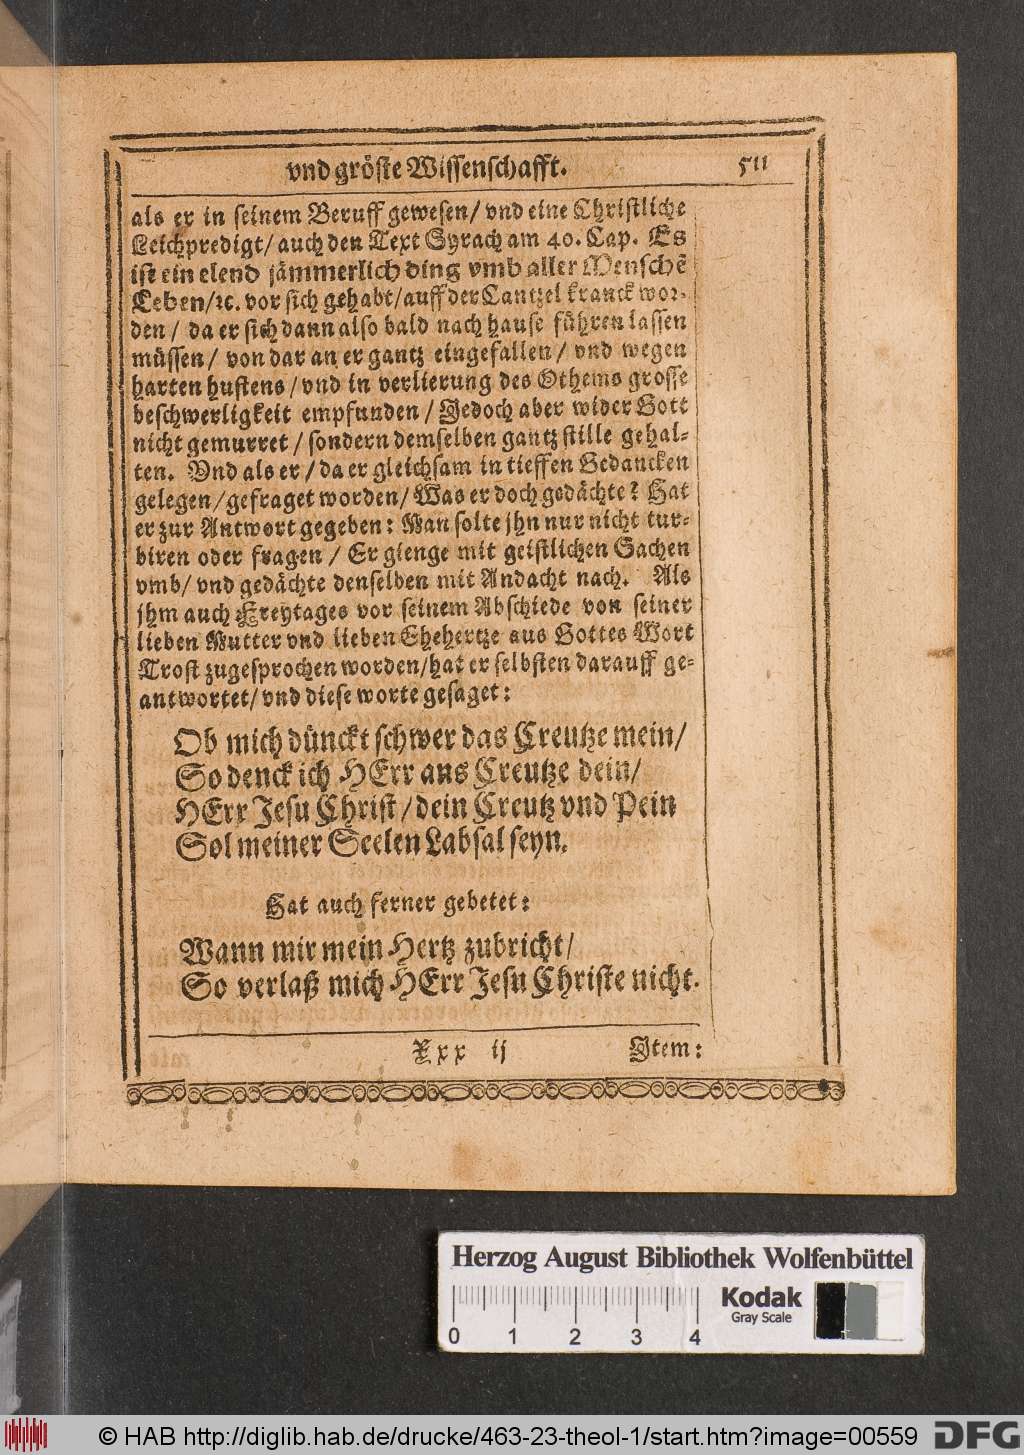 vnd gröſte Wiſſenſchafft. 511
als er in ſeinem Beruff geweſen/ vnd eine Chriſtliche
Leichpredigt/ auch den Text Syrach am 40. Cap. Es
iſt ein elend jämmerlich ding vmb aller Menſchẽ
Leben/ꝛc. vor ſich gehabt/auff der Cantzel kranck wor-
den / da er ſich dann alſo bald nach hauſe führen laſſen
müſſen/ von dar an er gantz eingefallen/ vnd wegen
harten huſtens/vnd in verlierung des Othems groſſe
beſchwerligkeit empfunden/ Jedoch aber wider Gott
nicht gemurret / ſondern demſelben gantz ſtille gehal-
ten. Vnd als er/da er gleichſam in tieffen Gedancken
gelegen/gefraget worden/Was er doch gedächte? Hat
er zur Antwort gegeben: Man ſolte jhn nur nicht tur-
biren oder fragen/ Er gienge mit geiſtlichen Sachen
vmb/ vnd gedächte denſelben mit Andacht nach. Als
jhm auch Freytages vor ſeinem Abſchiede von ſeiner
lieben Mutter vnd lieben Ehehertze aus Gottes Wort
Troſt zugeſprochen worden/hat er ſelbſten darauff ge-
antwortet/ vnd dieſe worte geſaget:
Ob mich dünckt ſchwer das Creutze mein/
So denck ich HErr ans Creutze dein/
HErr Jeſu Chriſt/dein Creutz vnd Pein
Sol meiner Seelen Labſal ſeyn.
Hat auch ferner gebetet:
Wann mir mein Hertz zubricht/
So verlaß mich HErr Jeſu Chriſte nicht.
Xxx ij Item:
Herzog August Bibliothek Wolfenbüttel
0 1 2 3 4
Kodak
Gray Scale
© HAB http://diglib.hab.de/drucke/463-23-theol-1/start.htm?image=00559
DFG